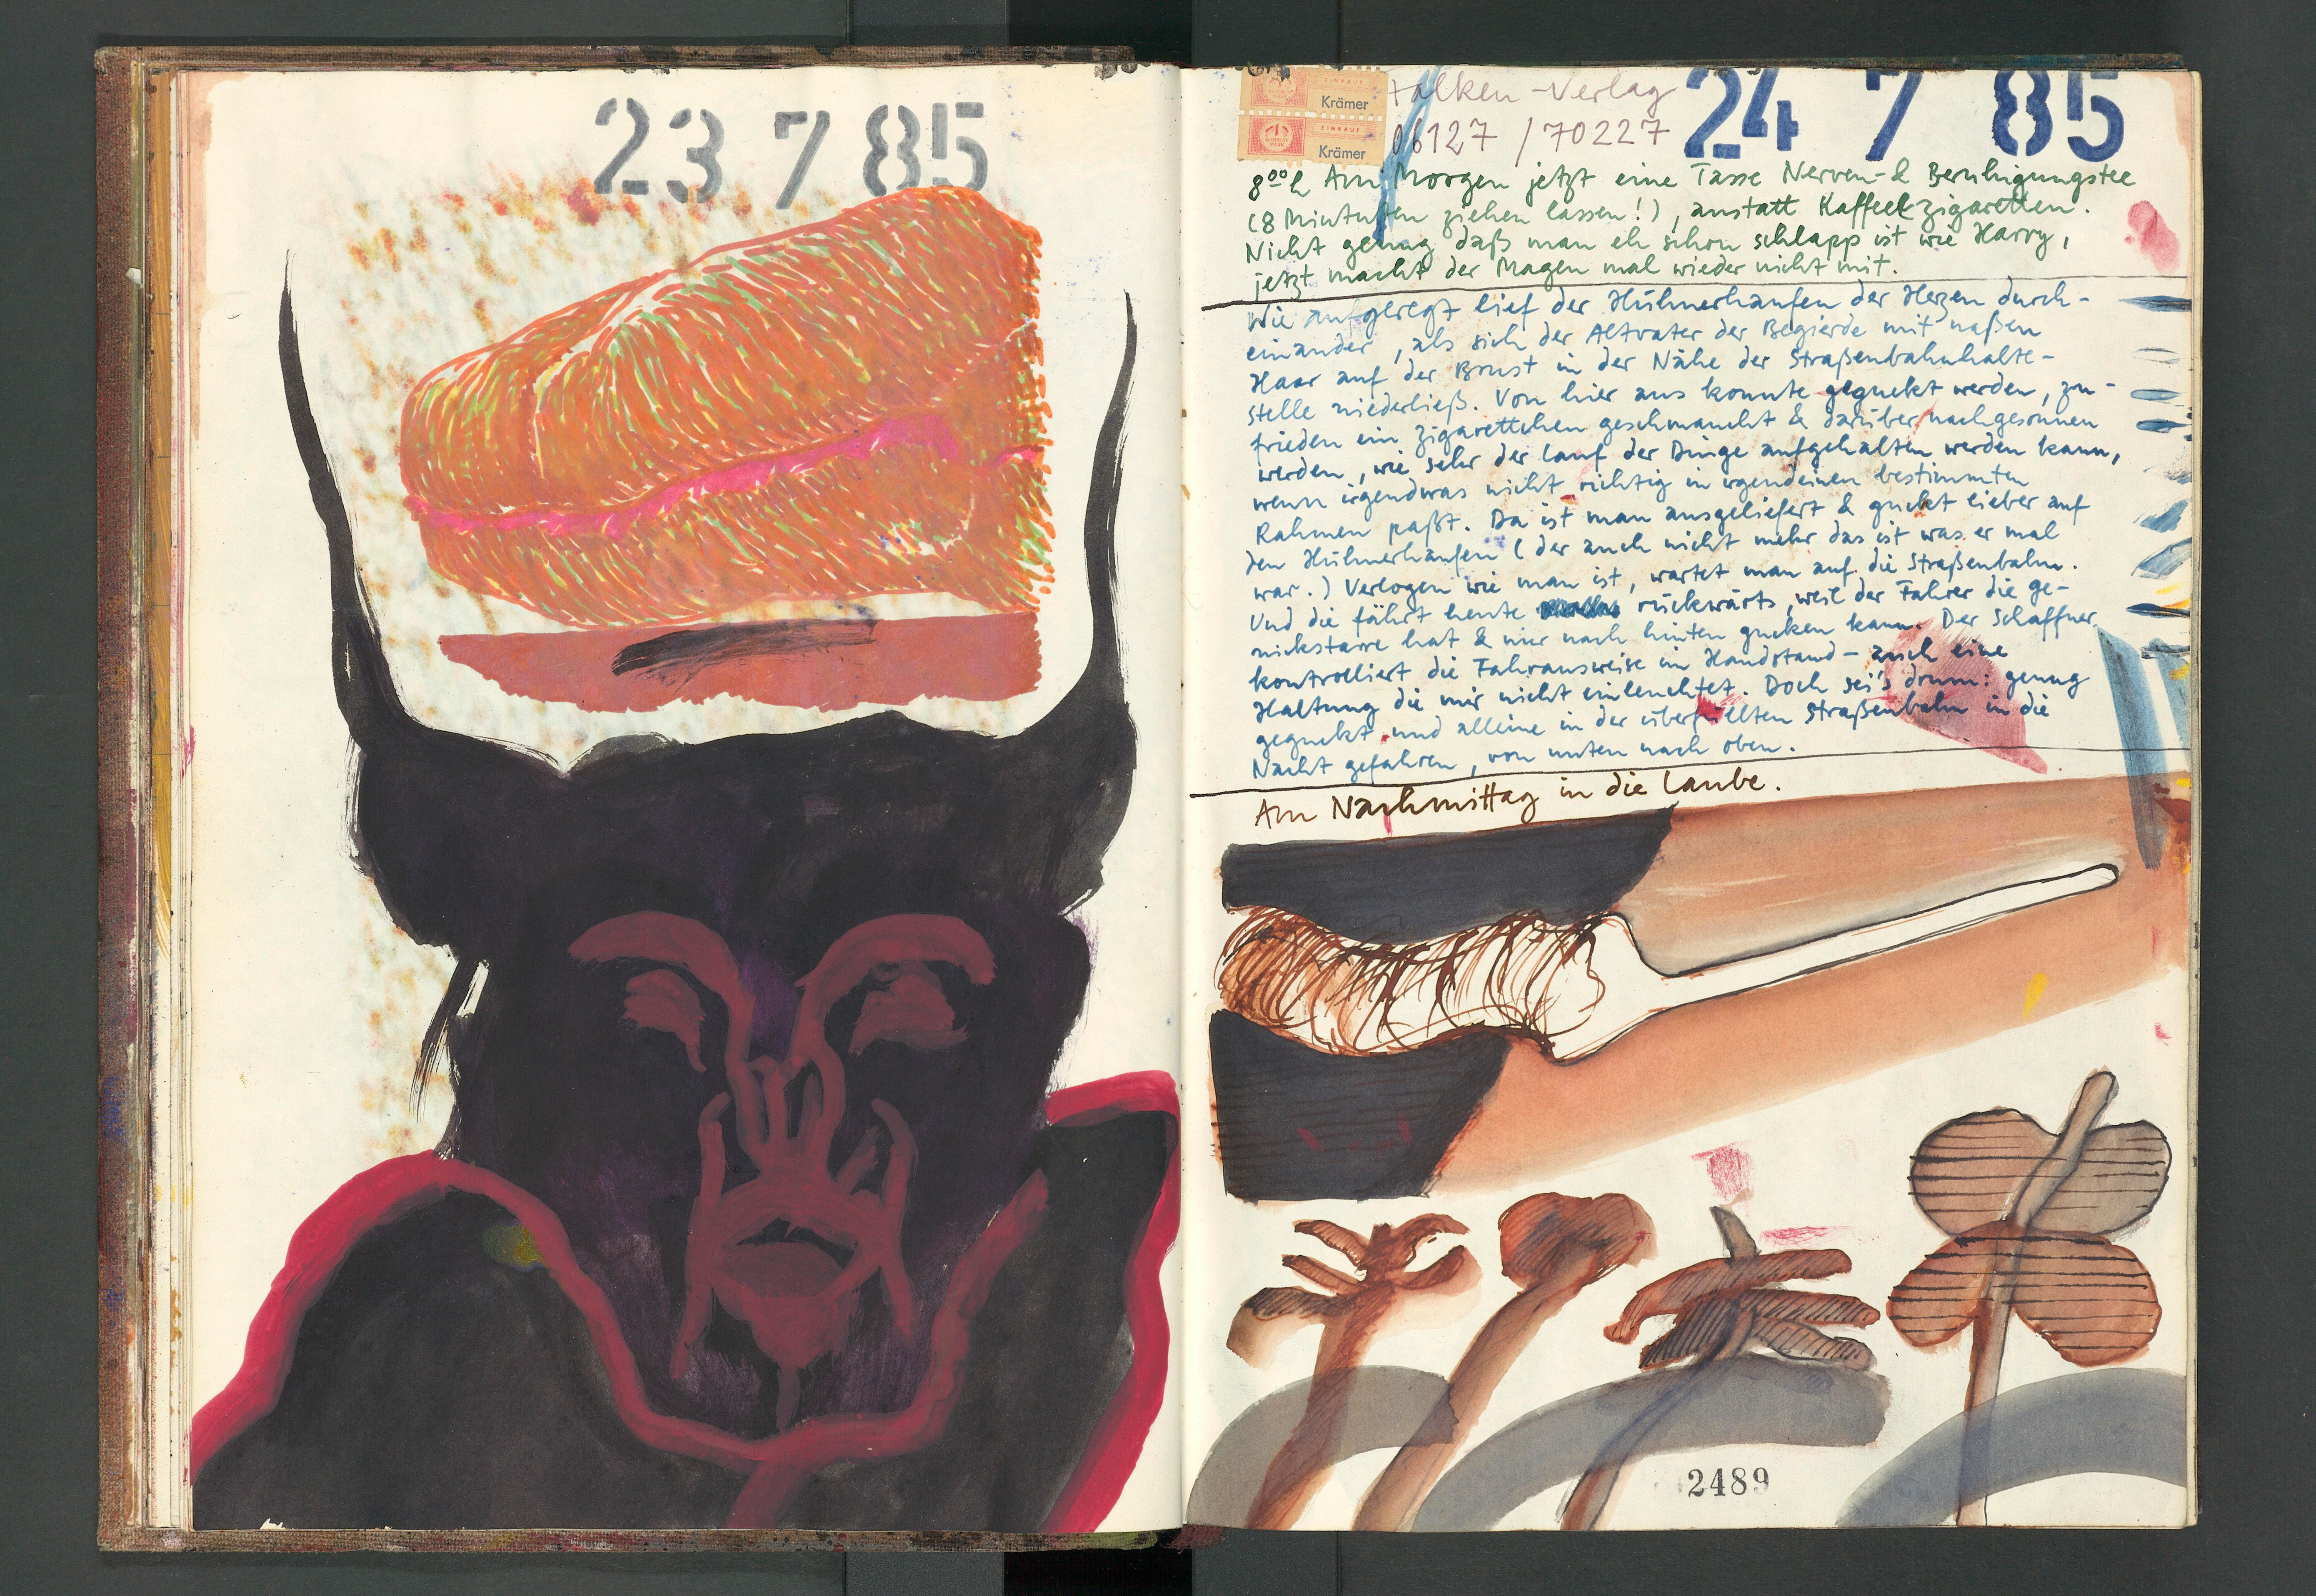 23 7 85
EINKAUF
Krämer
EINKAUF
Krämer
Falken-Verlag
06127 / 70227
24 7 85
8⁰⁰h Am Morgen jetzt eine Tasse Nerven-& Beruhigungstee
(8 Mintuten ziehen lassen!), anstatt Kaffee&zigaretten.
Nicht genug daß man eh schon schlapp ist wie Harry,
jetzt macht der Magen mal wieder nicht mit.
Wie aufgeregt lief der Hühnerhaufen der Herzen durch-
einander, als sich der Altvater der Begierde mit naßen
Haar auf der Brust in der Nähe der Straßenbahnhalte-
stelle niederließ. Von hier aus konnte geguckt werden, zu-
frieden ein Zigarettchen geschmaucht & darüber nachgesonnen
werden, wie sehr der Lauf der Dinge aufgehalten werden kann,
wenn irgendwas nicht richtig in irgendeinen bestimmten
Rahmen paßt. Da ist man ausgeliefert & guckt lieber auf
den Hühnerhaufen (der auch nicht mehr das ist was er mal
war.) Verlogen wie man ist, wartet man auf die Straßenbahn.
Und die fährt heute rückwärts, weil der Fahrer die Ge-
nickstarre hat & nur nach hinten gucken kann. Der Schaffner
kontrolliert die Fahrausweise im Handstand – auch eine
Haltung die mir nicht einleuchtet. Doch sei's drum: genug
geguckt und alleine in der überfüllten Straßenbahn in die
Nacht gefahren, von unten nach oben.
Am Nachmittag in die Laube.
2489